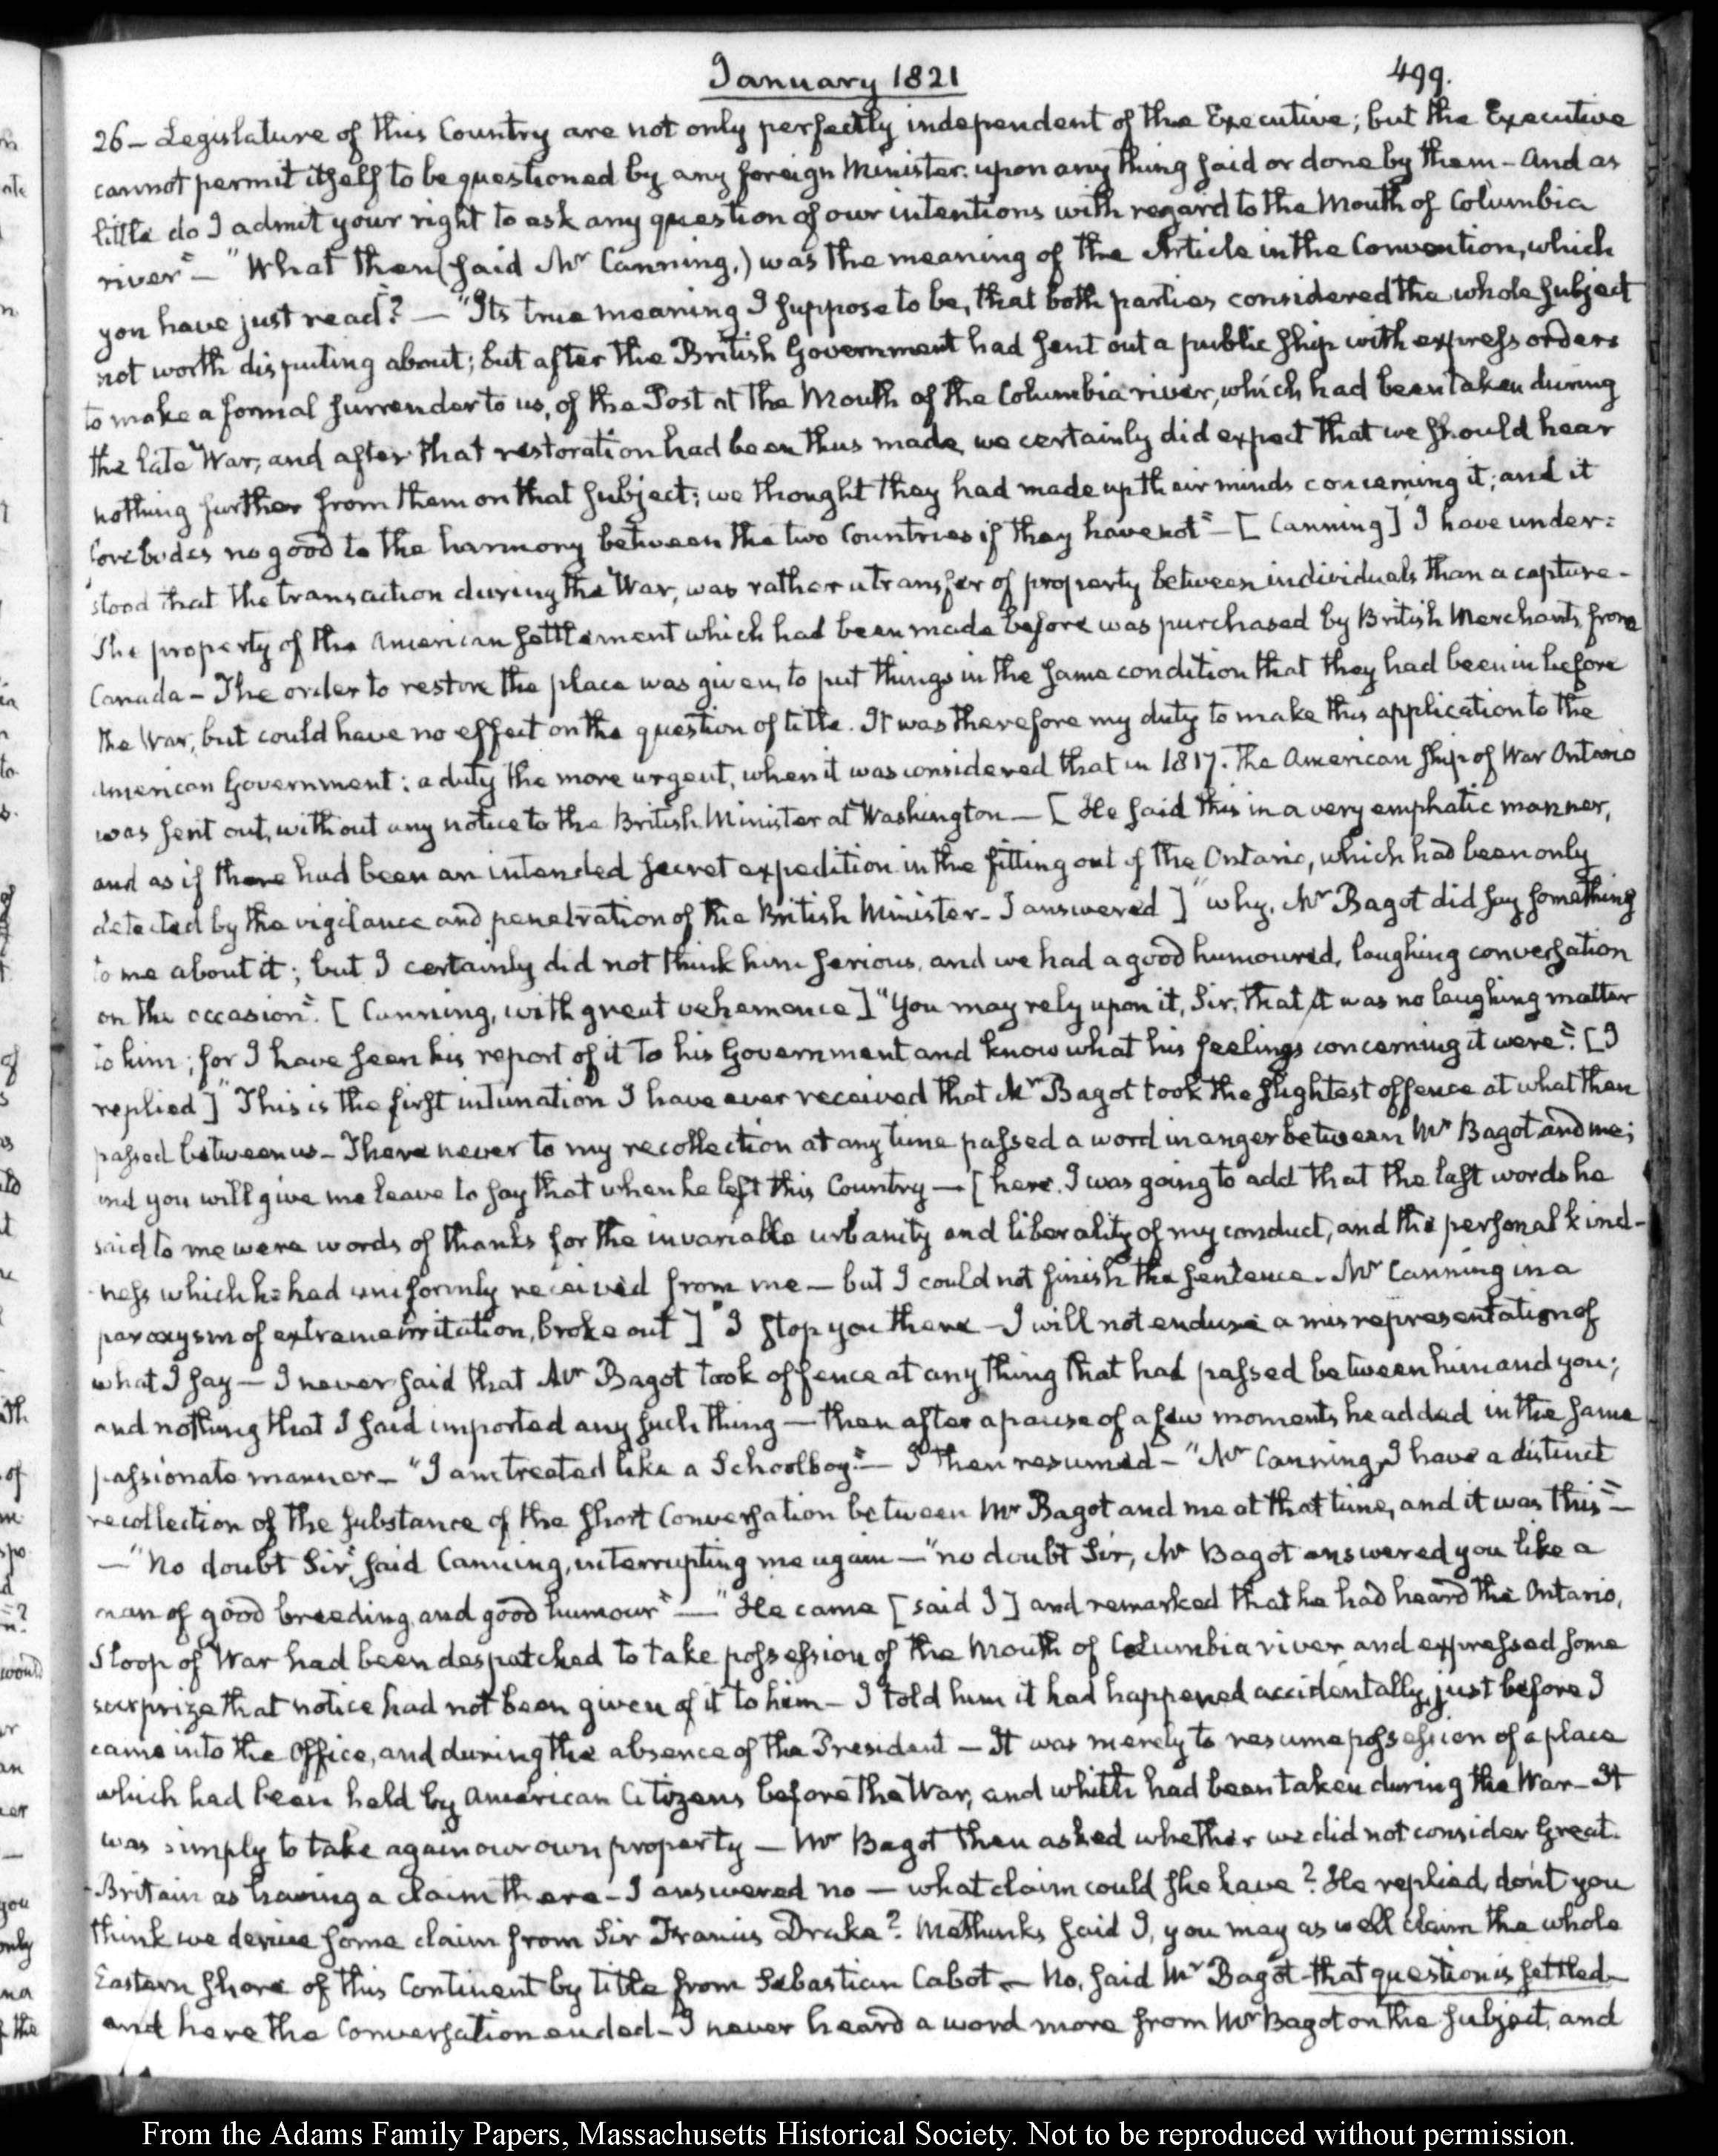 January 1821
499.
26 – Legislature of this Country are not only perfectly independent of the Executive; but the Executive
cannot permit itself to be questioned by any foreign Minister upon any thing said or done by them – And as
little do I admit your right to ask any question of our intentions with regard to the Mouth of Columbia
river" – "What then (said Mr Canning,) was the meaning of the Article in the Convention, which
you have just read"? – "Its true meaning I suppose to be, that both parties considered the whole subject
not worth disputing about; but after the British Government had sent out a public ship with express orders
to make a formal surrender to us, of the Post at the Mouth of the Columbia river, which had been taken during
the late War, and after that restoration had been thus made, we certainly did expect that we should hear
nothing further from them on that subject; we thought they had made up their minds concerning it; and it
forebodes no good to the harmony between the two Countries if they have not" – [Canning] "I have under=
stood that the transaction during the War, was rather a transfer of property between individuals than a capture –
The property of the American settlement which had been made before was purchased by British Merchants, from
Canada – The order to restore the place was given, to put things in the same condition that they had been in before
the War, but could have no effect on the question of title. It was therefore my duty to make this application to the
American Government: a duty the more urgent, when it was considered that in 1817. the American Ship of War Ontario
was sent out, without any notice to the British Minister at Washington – [He said this in a very emphatic manner,
and as if there had been an intended secret expedition in the fitting out of the Ontario, which had been only
detected by the vigilance and penetration of the British Minister – I answered] "why, Mr Bagot did say something
to me about it; but I certainly did not think him serious, and we had a good humoured, laughing conversation
on the occasion". [Canning, with great vehemence] "You may rely upon it, Sir, that it was no laughing matter
to him; for I have seen his report of it to his Government and know what his feelings concerning it were". [I
replied] "This is the first intimation I have ever received that Mr Bagot took the slightest offence at what then
passed between us – There never to my recollection at any time passed a word in anger between Mr Bagot and me;
and you will give me leave to say that when he left this Country – [here I was going to add that the last words he
said to me were words of thanks for the invariable urbanity and liberality of my conduct, and the personal kind-
ness which he had uniformly received from me – but I could not finish the sentence – Mr Canning in a
paroxysm of extreme irritation, broke out] "I stop you there – I will not endure a misrepresentation of
what I say – I never said that Mr Bagot took offence at any thing that had passed between him and you;
and nothing that I said imported any such thing – then after a pause of a few moments, he added in the same
passionate manner – "I am treated like a Schoolboy" – I then resumed – "Mr Canning, I have a distinct
recollection of the substance of the short Conversation between Mr Bagot and me at that time, and it was this" –
– "No doubt Sir, said Canning, interrupting me again – "no doubt Sir, Mr Bagot answered you like a
man of good breeding and good humour" – "He came [said I] and remarked that he had heard the Ontario,
Sloop of War had been despatched to take possession of the Mouth of Columbia river and expressed some
surprize that notice had not been given of it to him – I told him it had happened accidentally, just before I
came into the Office, and during the absence of the President – It was merely to resume possession of a place
which had been held by American Citizens before the War, and which had been taken during the War – It
was simply to take again our own property – Mr Bagot then asked whether we did not consider Great-
Britain as having a claim there – I answered no – what claim could she have? He replied, don't you
think we derive some claim from Sir Francis Drake? Methinks said I, you may as well claim the whole
Eastern shore of this Continent by title from Sebastian Cabot – No, said Mr Bagot – that question is settled –
and here the Conversation ended – I never heard a word more from Mr Bagot on the subject, and
From the Adams Family Papers, Massachusetts Historical Society. Not to be reproduced without permission.